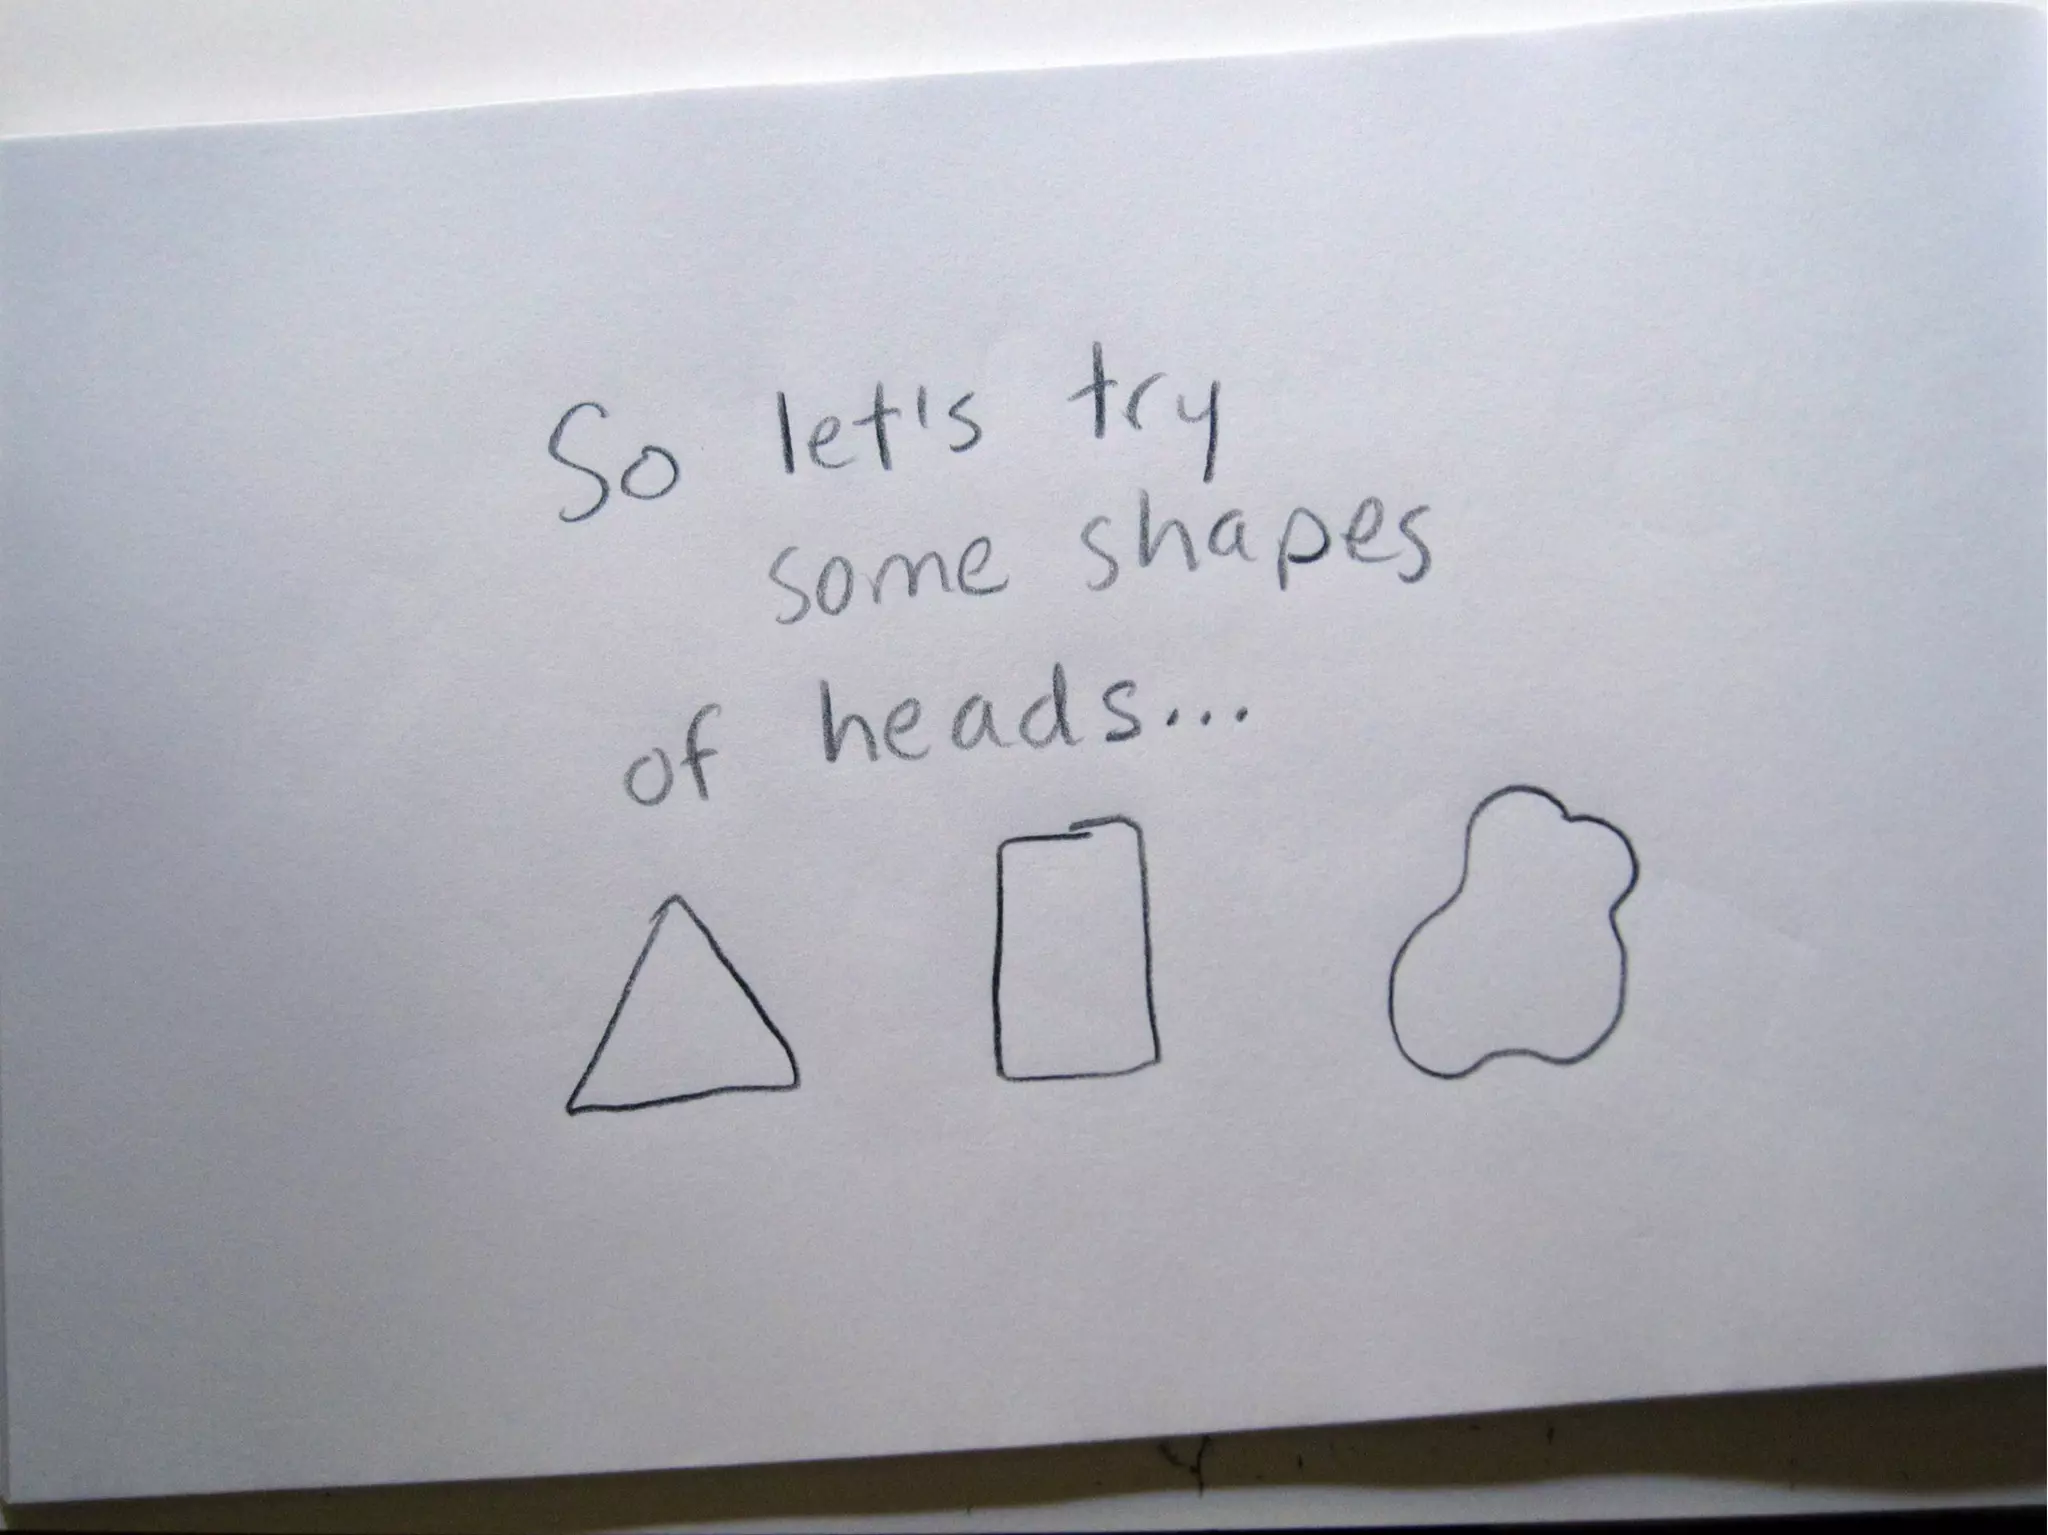 So let's try
some shapes
of heads...